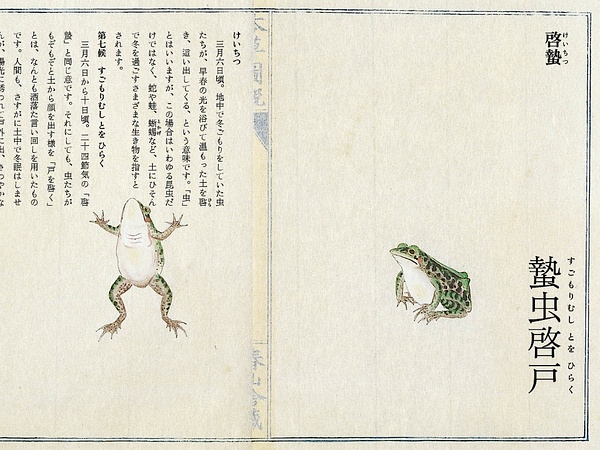 啓蟄
けいちつ
蟄虫啓戸
すごもりむし とを ひらく
けいちつ
三月六日頃。地中で冬ごもりをしていた虫
たちが、早春の光を浴びて温もった土を啓
き、這い出してくる、という意味です。「虫」
とはいいますが、この場合はいわゆる昆虫だ
けではなく、蛇や蛙、蜥蜴など、土にひそん
で冬を過ごすさまざまな生き物を指すと
されます。
第七候 すごもりむし とを ひらく
三月六日から十日頃。二十四節気の「啓
蟄」と同じ意です。それにしても、虫たちが
もぞもぞと土から顔を出す様を「戸を啓く」
とは、なんとも洒落た言い回しを用いたもの
です。人間も、さすがに土中で冬眠はしませ
んが、陽光に誘われて戸外に出、さわやかな
本草図説
春山舎蔵